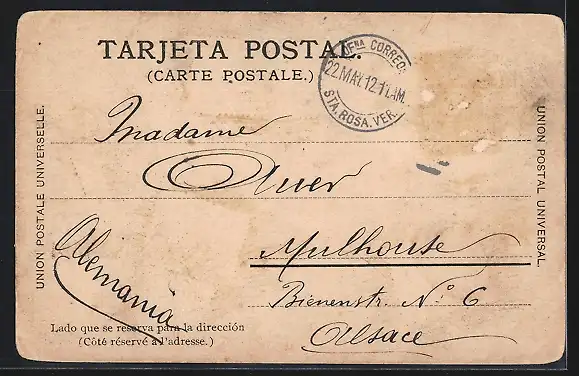 TARJETA POSTAL.
(CARTE POSTALE.)
OFNA CORREOS
22.MAY.12.11AM.
STA.ROSA.VER.
UNION POSTALE UNIVERSELLE.
UNION POSTAL UNIVERSAL.
Madame
Auer
Mulhouse
Bienenstr. No. 6
Alsace
Alemania
Lado que se reserva para la dirección
(Côté réservé a l'adresse.)